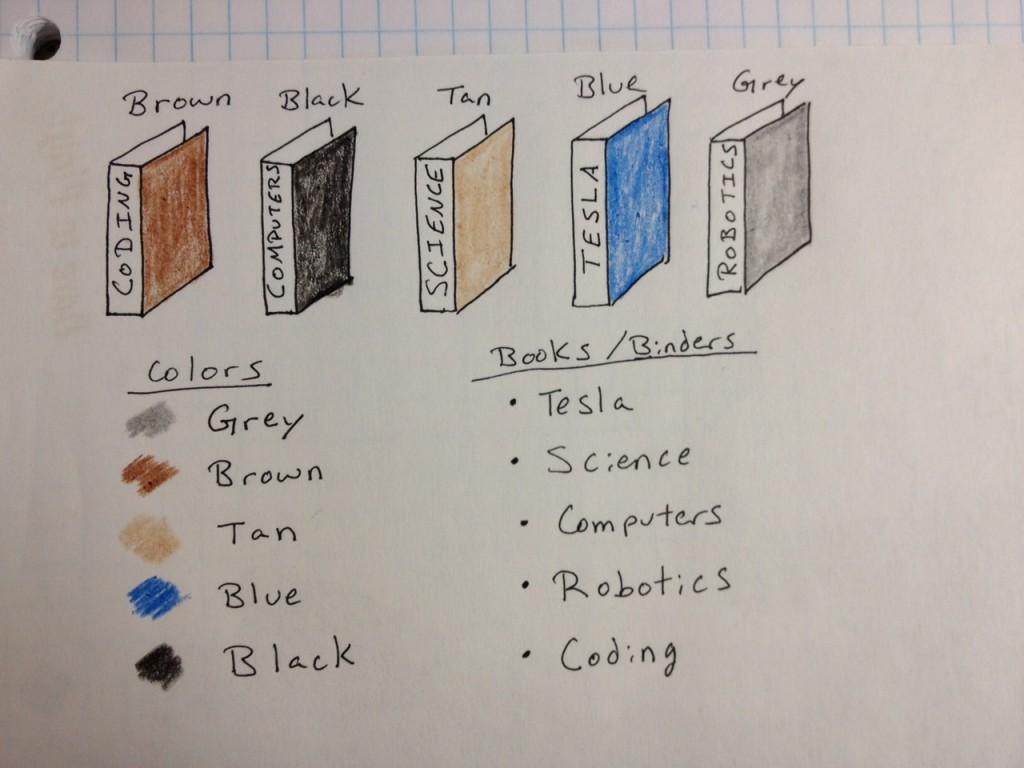 Brown Black Tan Blue Grey
CODING COMPUTERS SCIENCE TESLA ROBOTICS
Colors
Grey
Brown
Tan
Blue
Black
Books/Binders
• Tesla
• Science
• Computers
• Robotics
• Coding